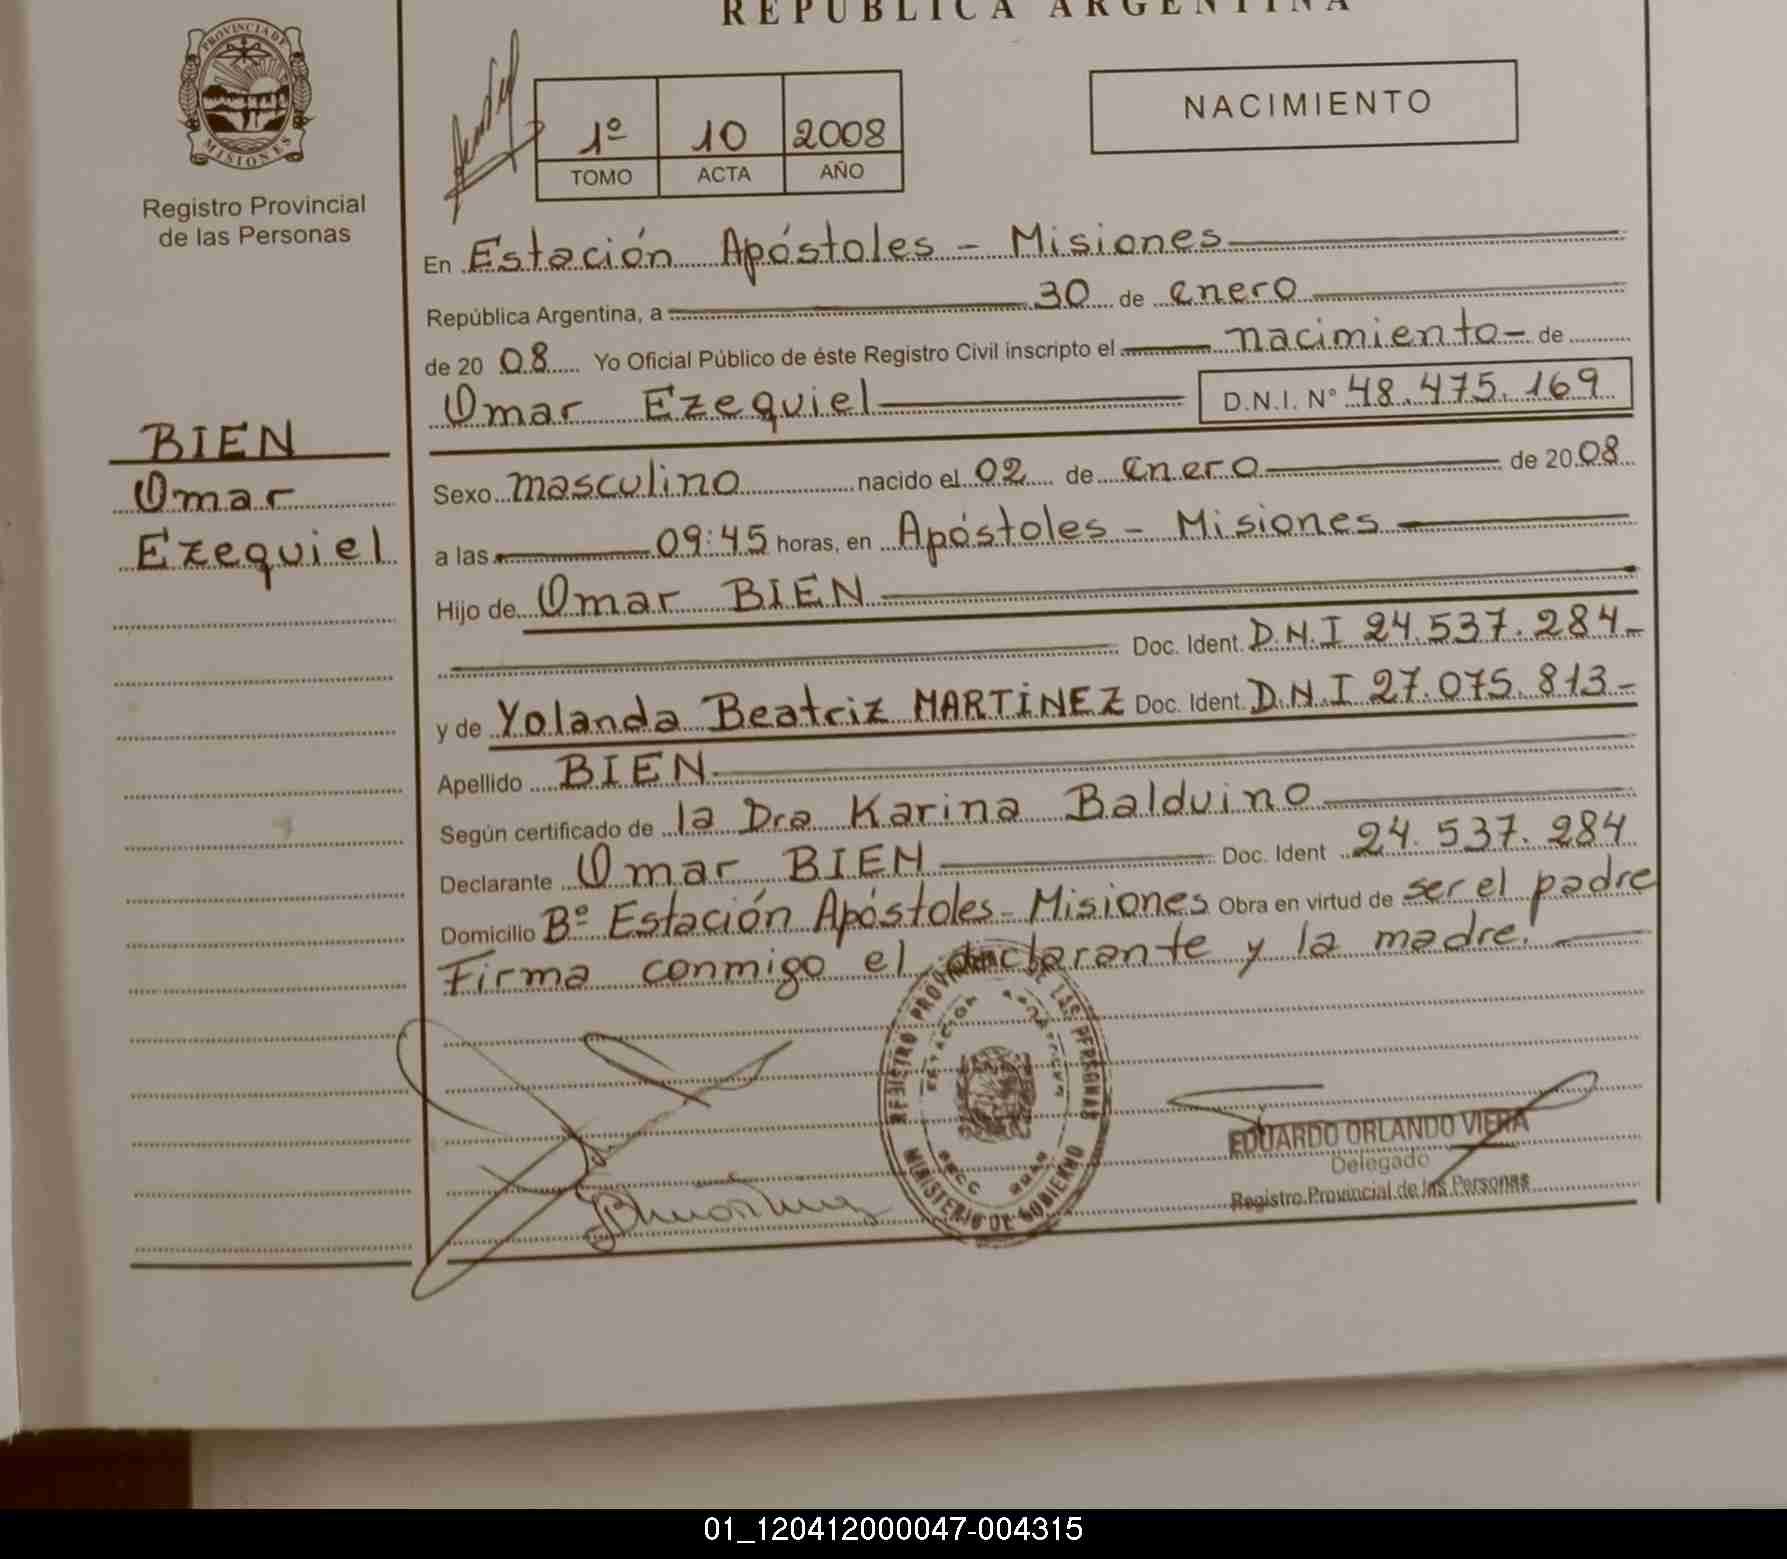 REPÚBLICA ARGENTINA
PROVINCIA DE
MISIONES
Registro Provincial
de las Personas
1º 10 2008
TOMO ACTA AÑO
NACIMIENTO
En Estación Apóstoles - Misiones
República Argentina, a 30 de enero
de 2008 Yo Oficial Público de éste Registro Civil inscripto el nacimiento - de
Omar Ezequiel D.N.I. Nº 48.475.169
BIEN
Omar
Ezequiel
Sexo masculino nacido el 02 de enero de 2008
a las 09:45 horas, en Apóstoles - Misiones
Hijo de Omar BIEN
Doc. Ident. D.N.I 24.537.284-
y de Yolanda Beatriz MARTÍNEZ Doc. Ident. D.N.I 27.075.813-
Apellido BIEN
Según certificado de la Dra Karina Balduino
Declarante Omar BIEN Doc. Ident 24.537.284
Domicilio Bº Estación Apóstoles - Misiones Obra en virtud de ser el padre
Firma conmigo el declarante y la madre.
REGISTRO PROVINCIAL DE LAS PERSONAS
ESTACION APOSTOLES
MINISTERIO DE GOBIERNO
EDUARDO ORLANDO VIERA
Delegado
Registro Provincial de las Personas
01_120412000047-004315